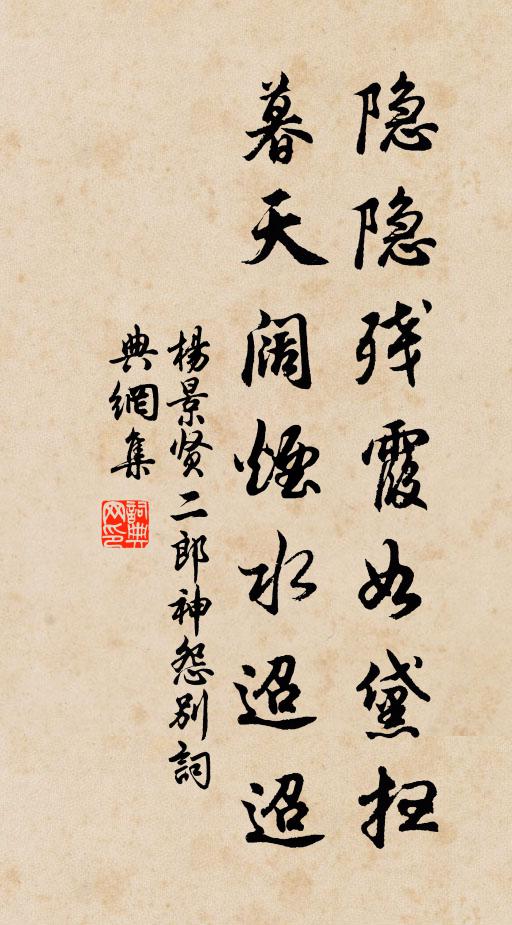 隐隐残霞如黛扫
暮天阔煙水迢迢
楊景贤二郎神怨别詞
典網集
詞典网印